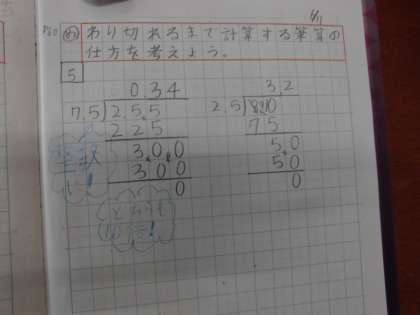 6/1
め わり切れるまで計算する筆算の
仕方を考えよう。
5
0.34
7.5)2.5.5
225
300
300
0
3.2
2.5)8.0
75
5.0
50
0
どちらも
10倍!